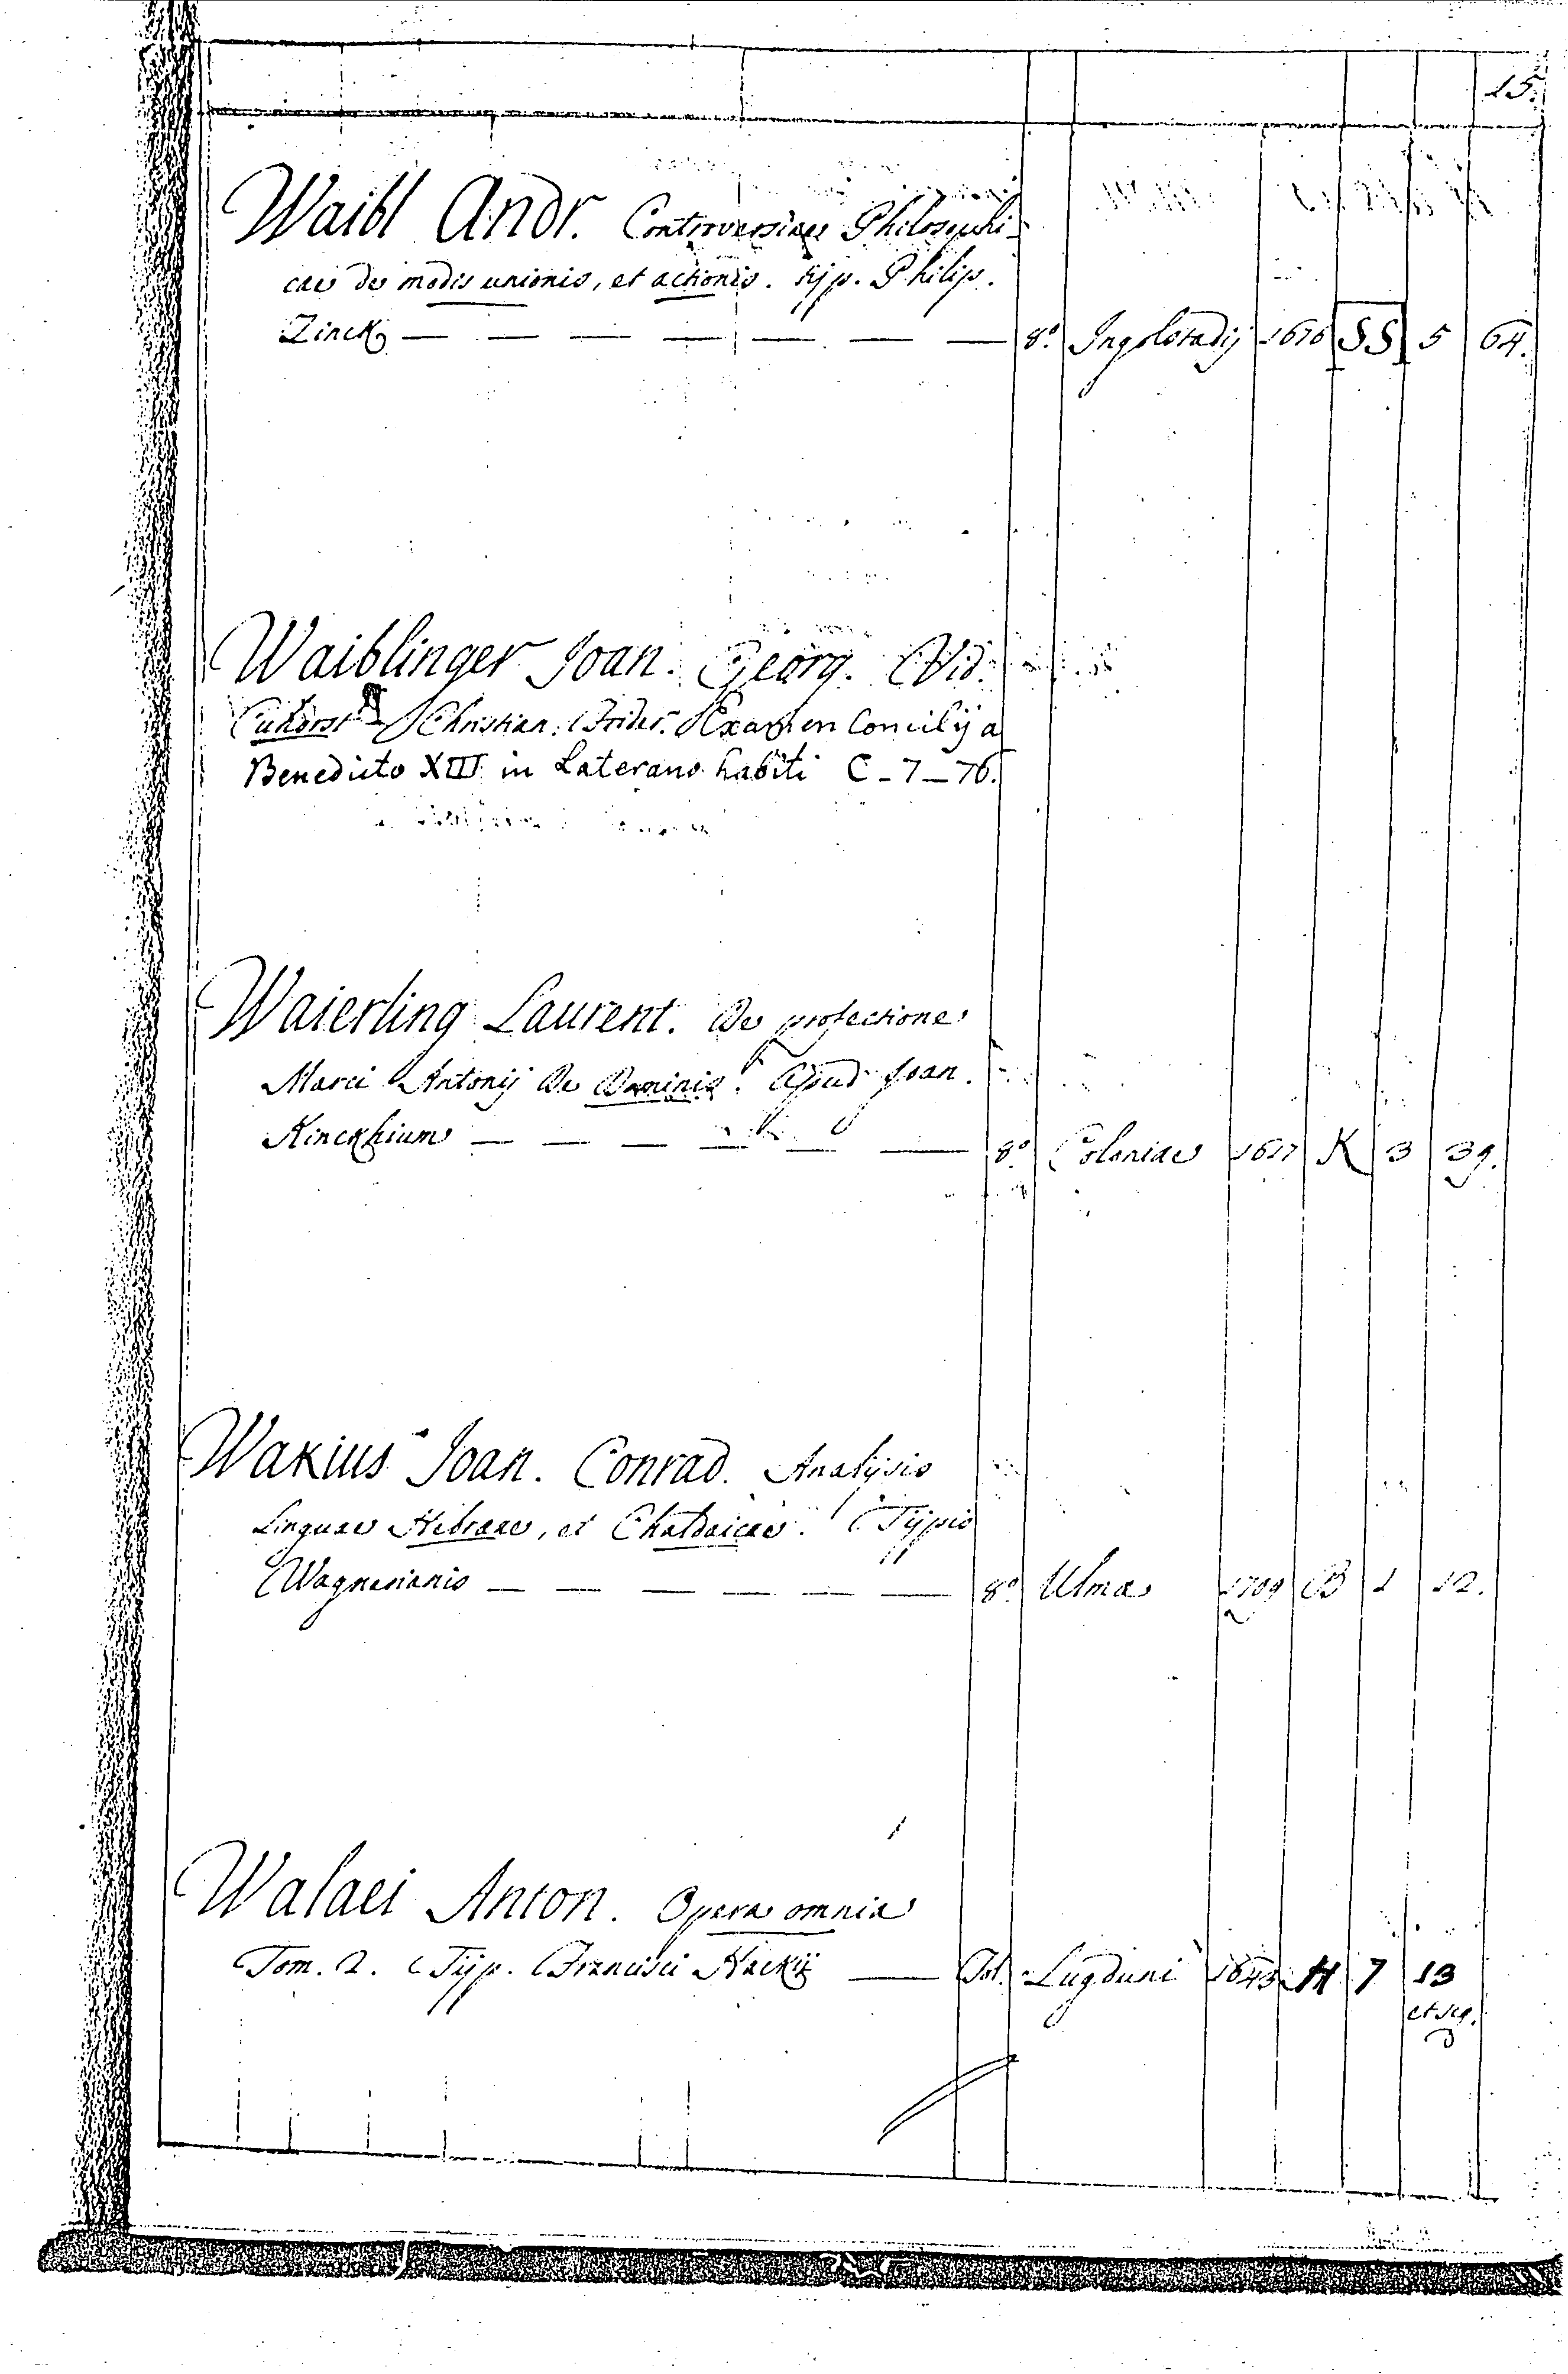 15.
Waibl Andr. Controversiae Philosophi-
cae de modis unionis, et actionis. typ. Philip.
Zinck — — — — — — — 8.º Ingolstadij 1676 SS 5 64.
Waiblinger Joan. Georg. Vid.
Cuhorst Christian. Frider. Examen Concilij a
Benedicto XIII in Laterano habiti C-7-76.
Waierling Laurent. De profectione
Marci Antonij De Dominis. Apud Joan.
Kinckhium — — — — — — 8.º Coloniae 1617 K 3 39.
Wakius Joan. Conrad. Analysis
Linguae Hebraae, et Chaldaicae. Typis
Wagnerianis — — — — — — 8.º Ulmae 1709 B 1 12.
Walaei Anton. Opera omnia
Tom. 2. Typ. Francisci Hackij — Fol. Lugduni 1643 H 7 13
et seq.